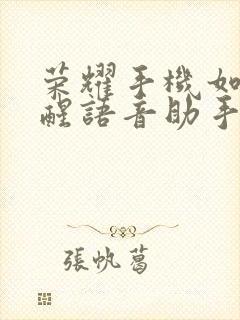 荣耀手機如
醒語音助手
張帆葛